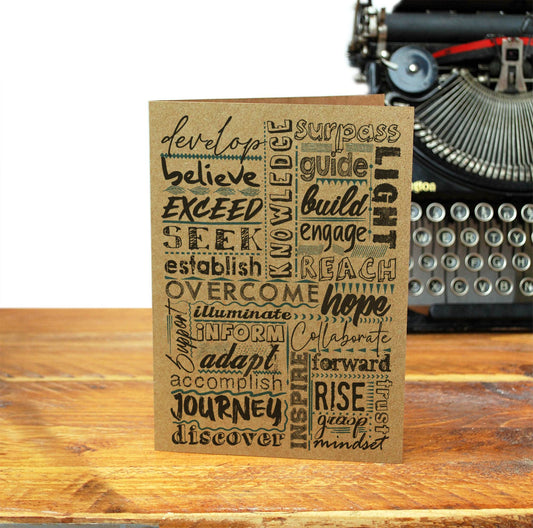 develop
believe
EXCEED
SEEK
establish
KNOWLEDGE
surpass
guide
build
engage
LIGHT
REACH
OVERCOME
hope
illuminate
Support
INFORM
Collaborate
adapt
accomplish
JOURNEY
discover
INSPIRE
forward
RISE
group
mindset
trust